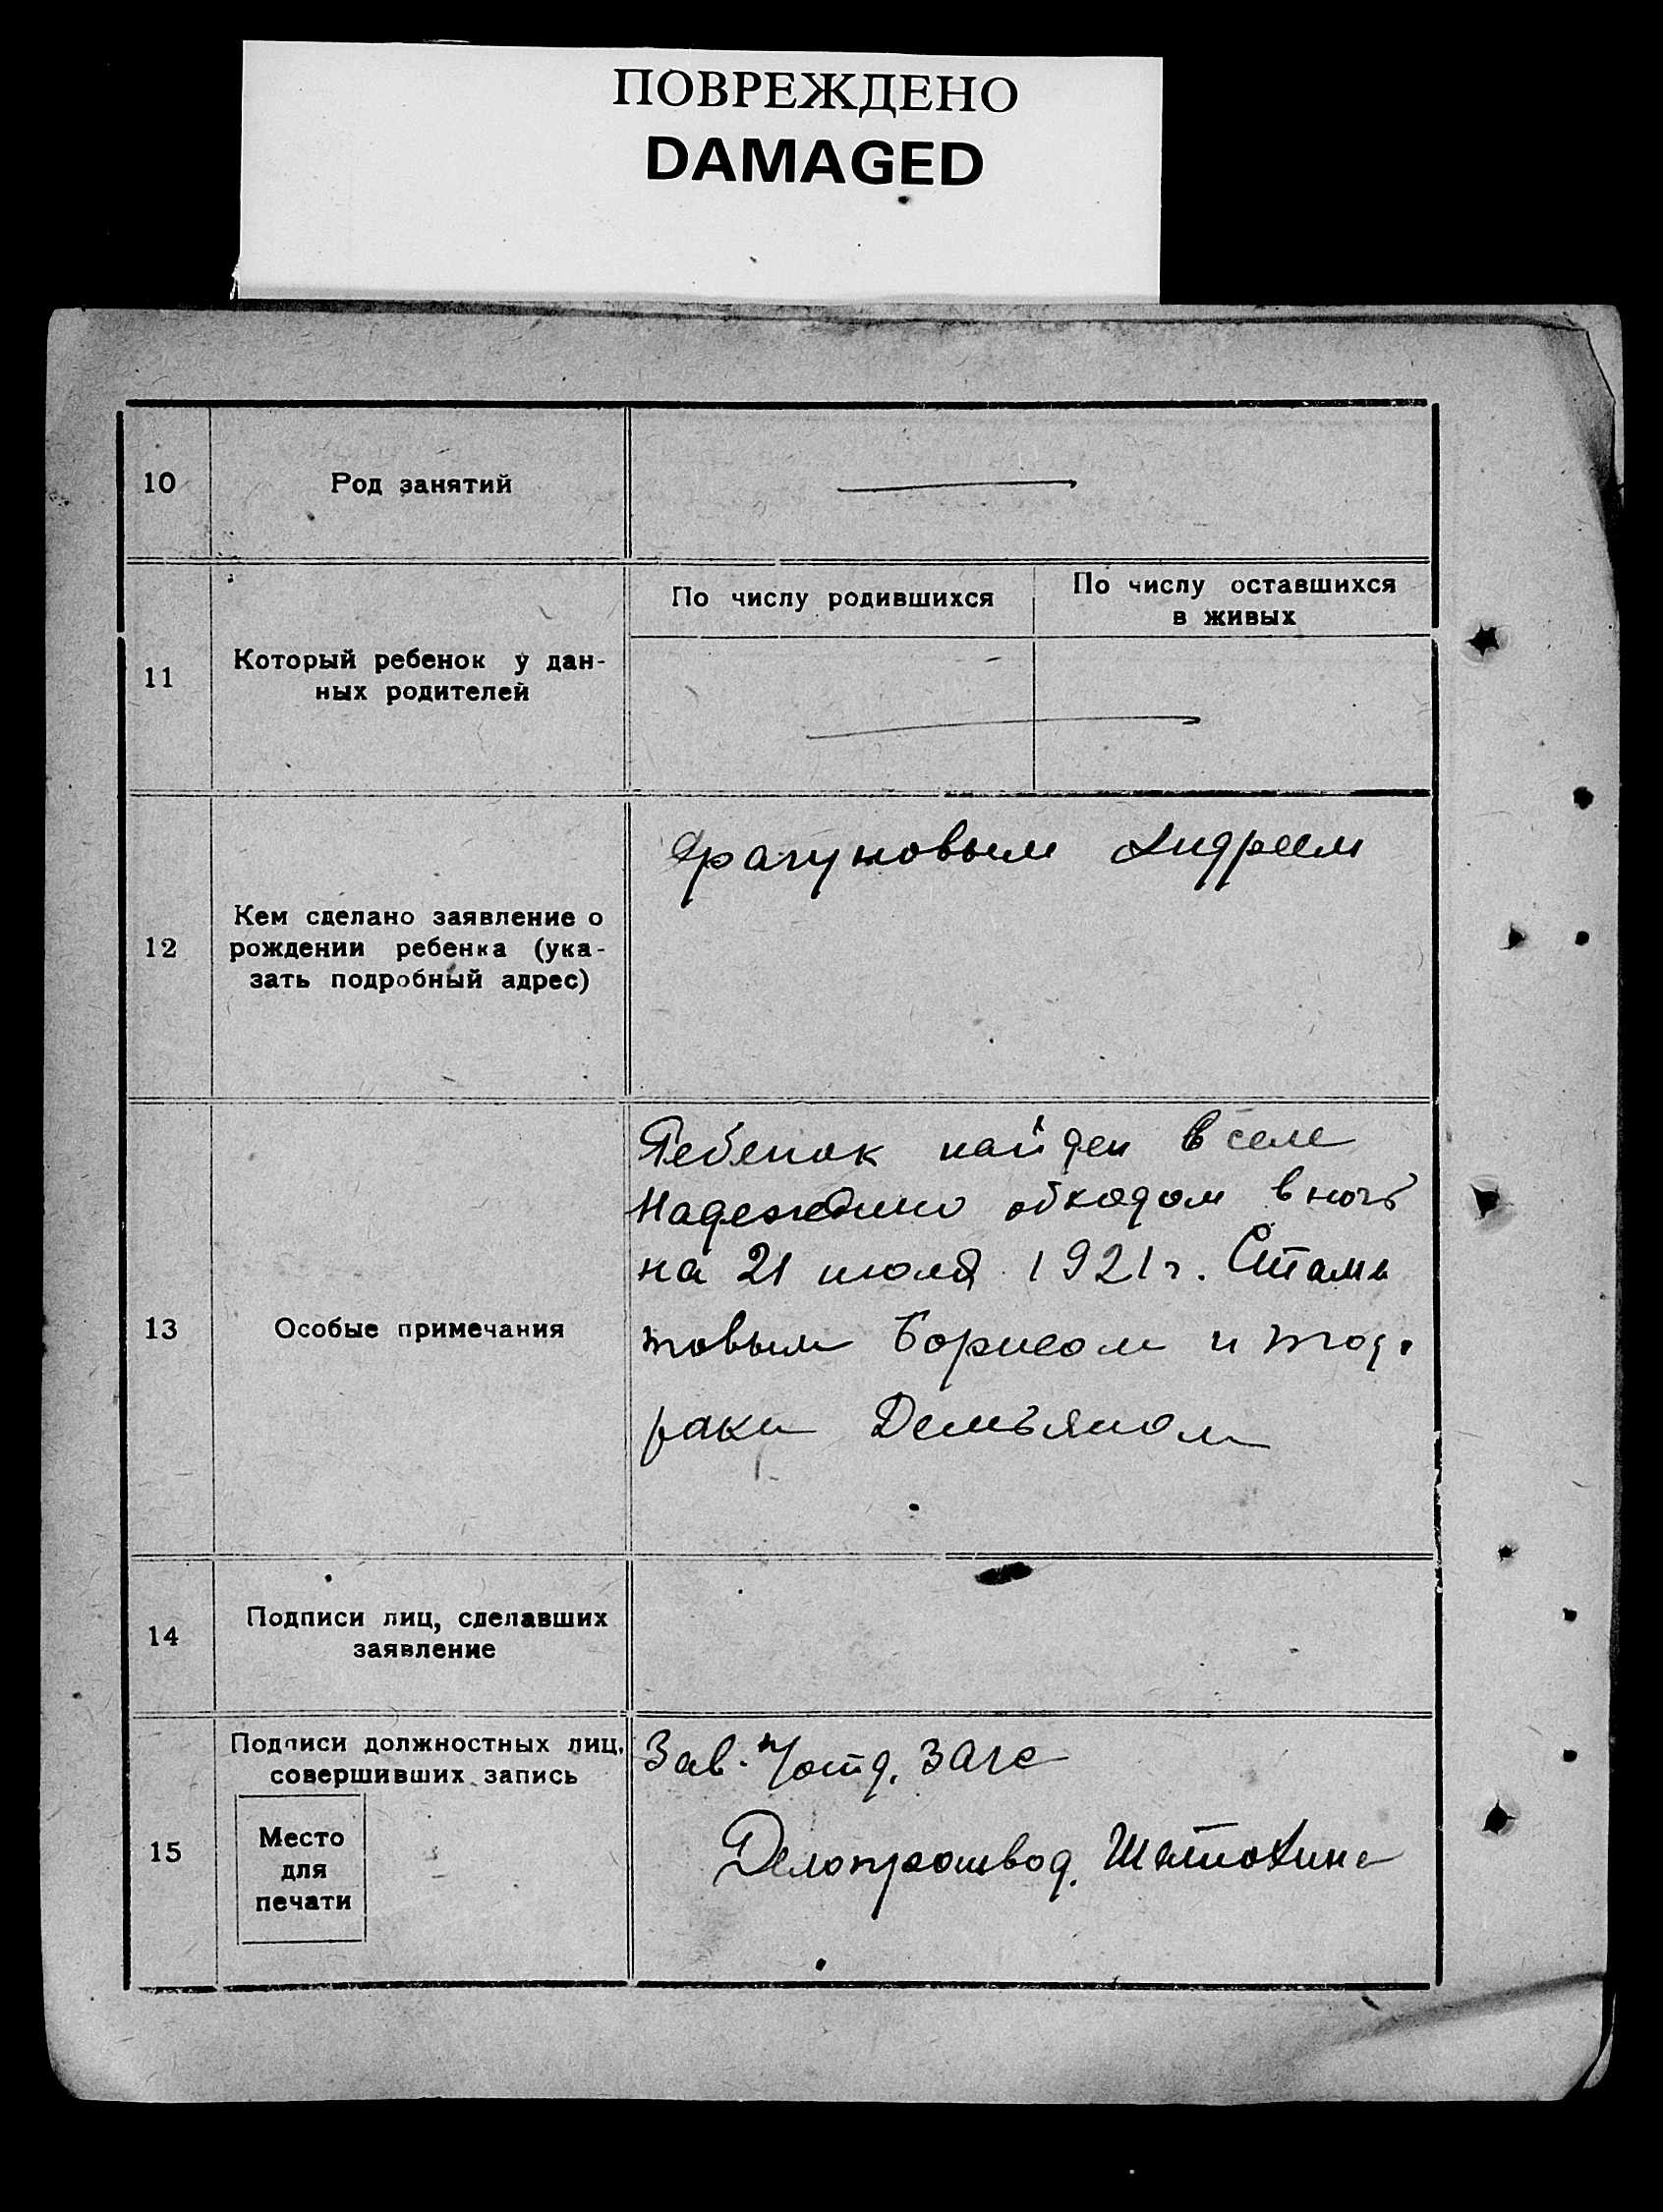 ПОВРЕЖДЕНО
DAMAGED
10
Род занятий
11
Который ребенок у дан-
ных родителей
По числу родившихся
По числу оставшихся
в живых
12
Кем сделано заявление о
рождении ребенка (ука-
зать подробный адрес)
Андреем
13
Особые примечания
Ребенок найден в селе
Надеждино обходом в ночь
на 21 июля 1921 г.
Борисом и
Демьяном
14
Подписи лиц, сделавших
заявление
15
Подписи должностных лиц,
совершивших запись
Место
для
печати
Зав. п/отд. Загс
Делопроизвод.